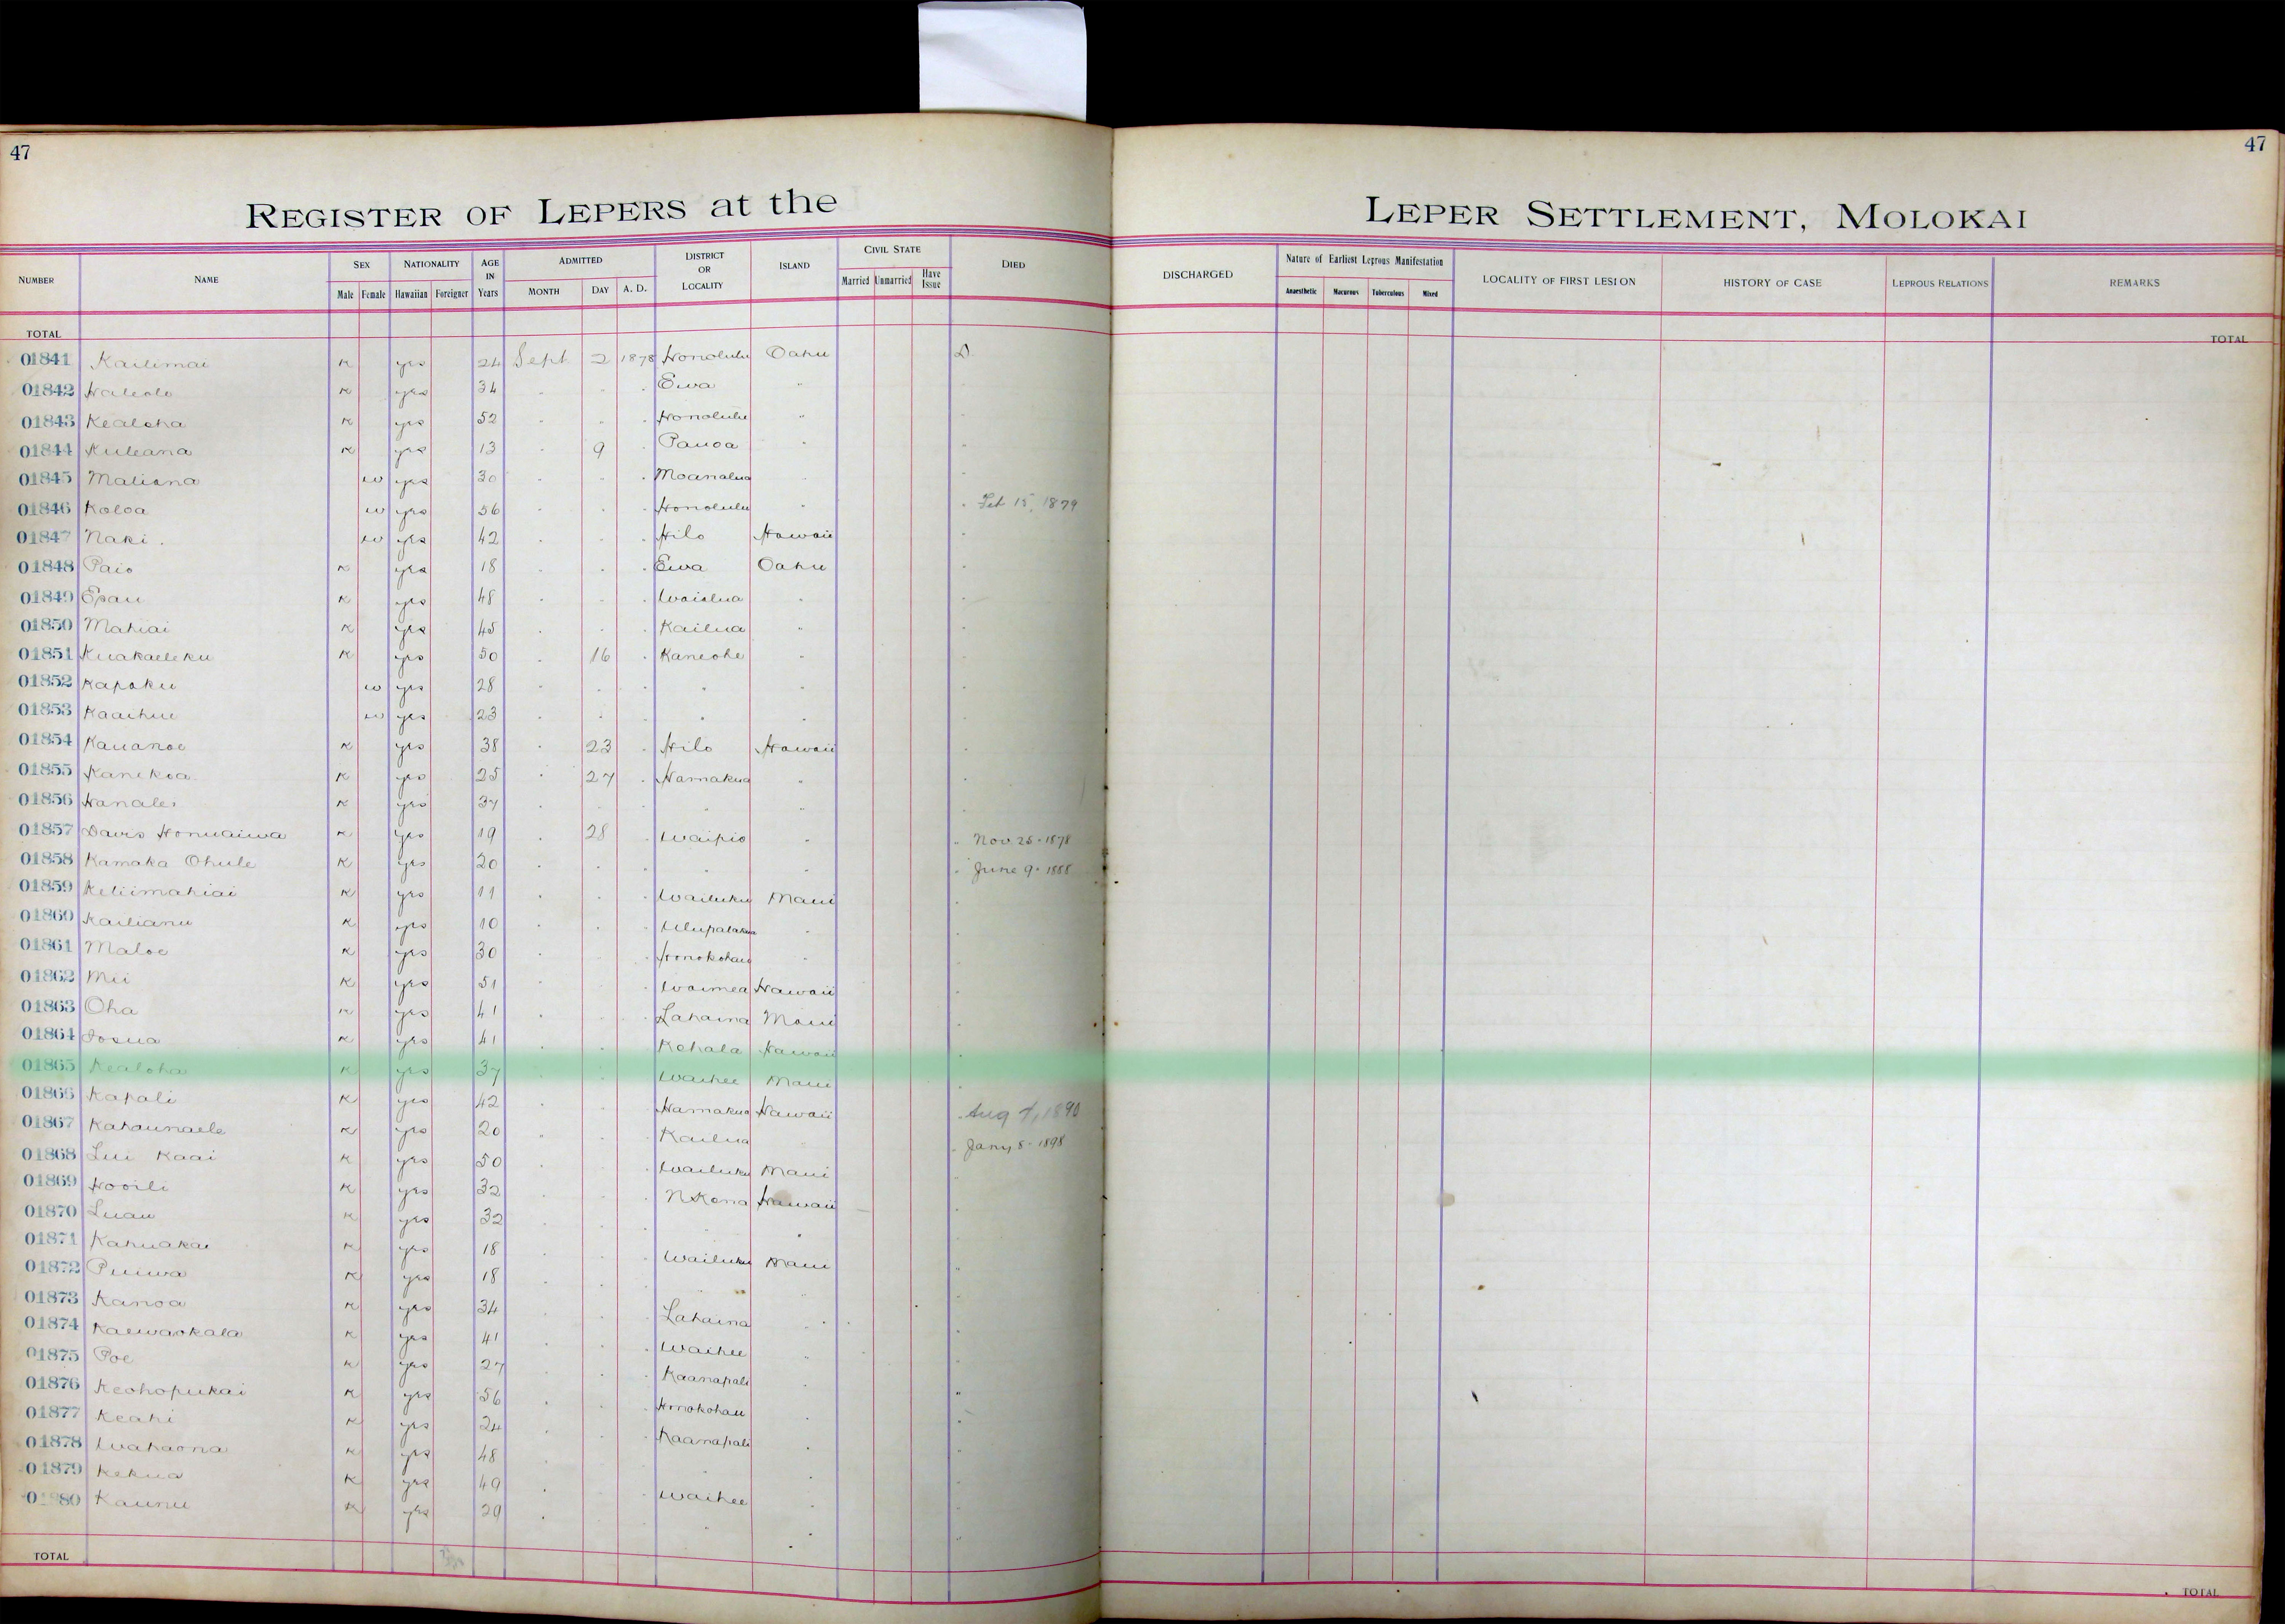 47
47
REGISTER OF LEPERS at the LEPER SETTLEMENT, MOLOKAI
NUMBER NAME SEX NATIONALITY AGE IN Years ADMITTED DISTRICT OR LOCALITY ISLAND CIVIL STATE DIED DISCHARGED Nature of Earliest Leprous Manifestation LOCALITY OF FIRST LESION HISTORY OF CASE LEPROUS RELATIONS REMARKS
Male Female Hawaiian Foreigner MONTH DAY A. D. Married Unmarried Have Issue Anaesthetic Macurous Tuberculous Mixed
TOTAL TOTAL
01841 Kailimai K yes 24 Sept 2 1878 Honolulu Oahu D
01842 Haleole K yes 34 " " " Ewa "
01843 Kealoha K yes 52 " " " Honolulu "
01844 Kuleana K yes 13 " 9 " Pauoa "
01845 Maliana w yes 30 " " " Moanalua "
01846 Koloa w yes 56 " " " Honolulu " " Feb 15, 1879
01847 Naki w yes 42 " " " Hilo Hawaii "
01848 Paio K yes 18 " " " Ewa Oahu "
01849 Epau K yes 48 " " " Waialua " "
01850 Mahiai K yes 45 " " " Kailua " "
01851 Kuakaeleku K yes 50 " 16 " Kaneohe " "
01852 Kapoku w yes 28 " " " " " "
01853 Kaaihue w yes 23 " " " " " "
01854 Kauanoe K yes 38 " 23 " Hilo Hawaii "
01855 Kanekoa K yes 25 " 27 " Hamakua " "
01856 Hanalei K yes 37 " " " " " "
01857 Davis Honuaiwa K yes 19 " 28 " Waipio " " Nov 25 - 1878
01858 Kamaka Ohule K yes 20 " " " " " " June 9 - 1888
01859 Keliimahiai K yes 11 " " " Wailuku Maui "
01860 Kailianu K yes 10 " " " Ulupalakua " "
01861 Maloe K yes 30 " " " Honokohau " "
01862 Mii K yes 51 " " " Waimea Hawaii "
01863 Oha K yes 41 " " " Lahaina Maui "
01864 Iosua K yes 41 " " " Kohala Hawaii "
01865 Kealoha K yes 37 " " " Waihee Maui "
01866 Kapali K yes 42 " " " Hamakua Hawaii " Aug 7, 1890
01867 Kahaunaele K yes 20 " " " Kailua " " Jany 8 - 1898
01868 Lui Kaai K yes 50 " " " Wailuku Maui "
01869 Hooili K yes 32 " " " N Kona Hawaii "
01870 Luau K yes 32 " " " " " "
01871 Kahuakai K yes 18 " " " Wailuku Maui "
01872 Puiwa K yes 18 " " " " " "
01873 Kanoa K yes 34 " " " Lahaina " "
01874 Kaewaokala K yes 41 " " " Waihee " "
01875 Poe K yes 27 " " " Kaanapali " "
01876 Keohopukai K yes 56 " " " Honokohau " "
01877 Keahi K yes 24 " " " Kaanapali " "
01878 Wahaona K yes 48 " " " " " "
01879 Kekua K yes 49 " " " Waihee " "
0 80 Kaunu K yes 29 " " " " " "
TOTAL TOTAL